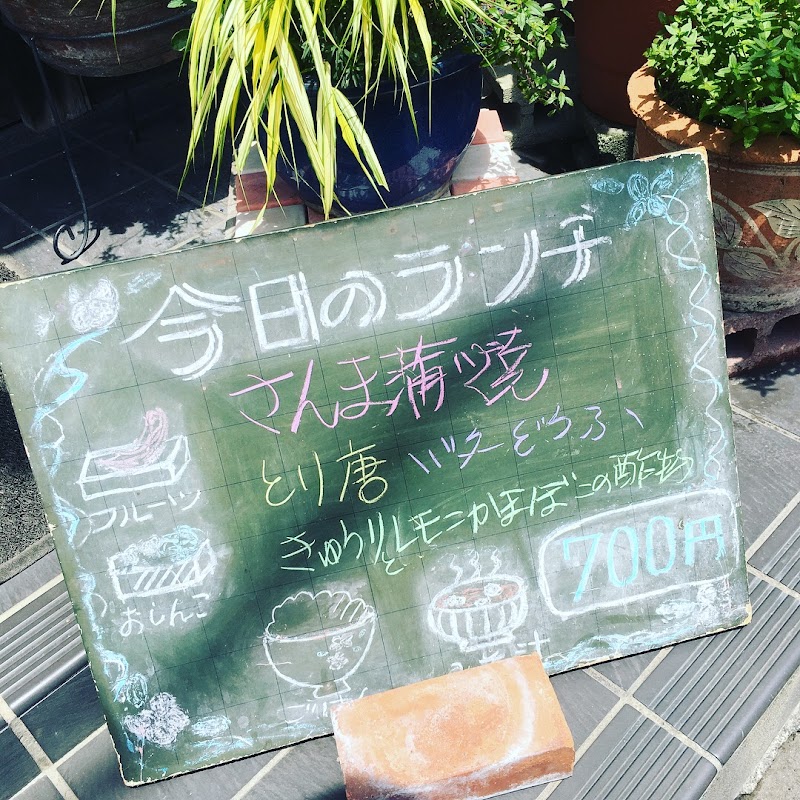 今日のランチ
さんま蒲焼
とり唐 バターどうふ
きゅうりとレモンかまぼこの酢物
700円
フルーツ
おしんこ
ごはん